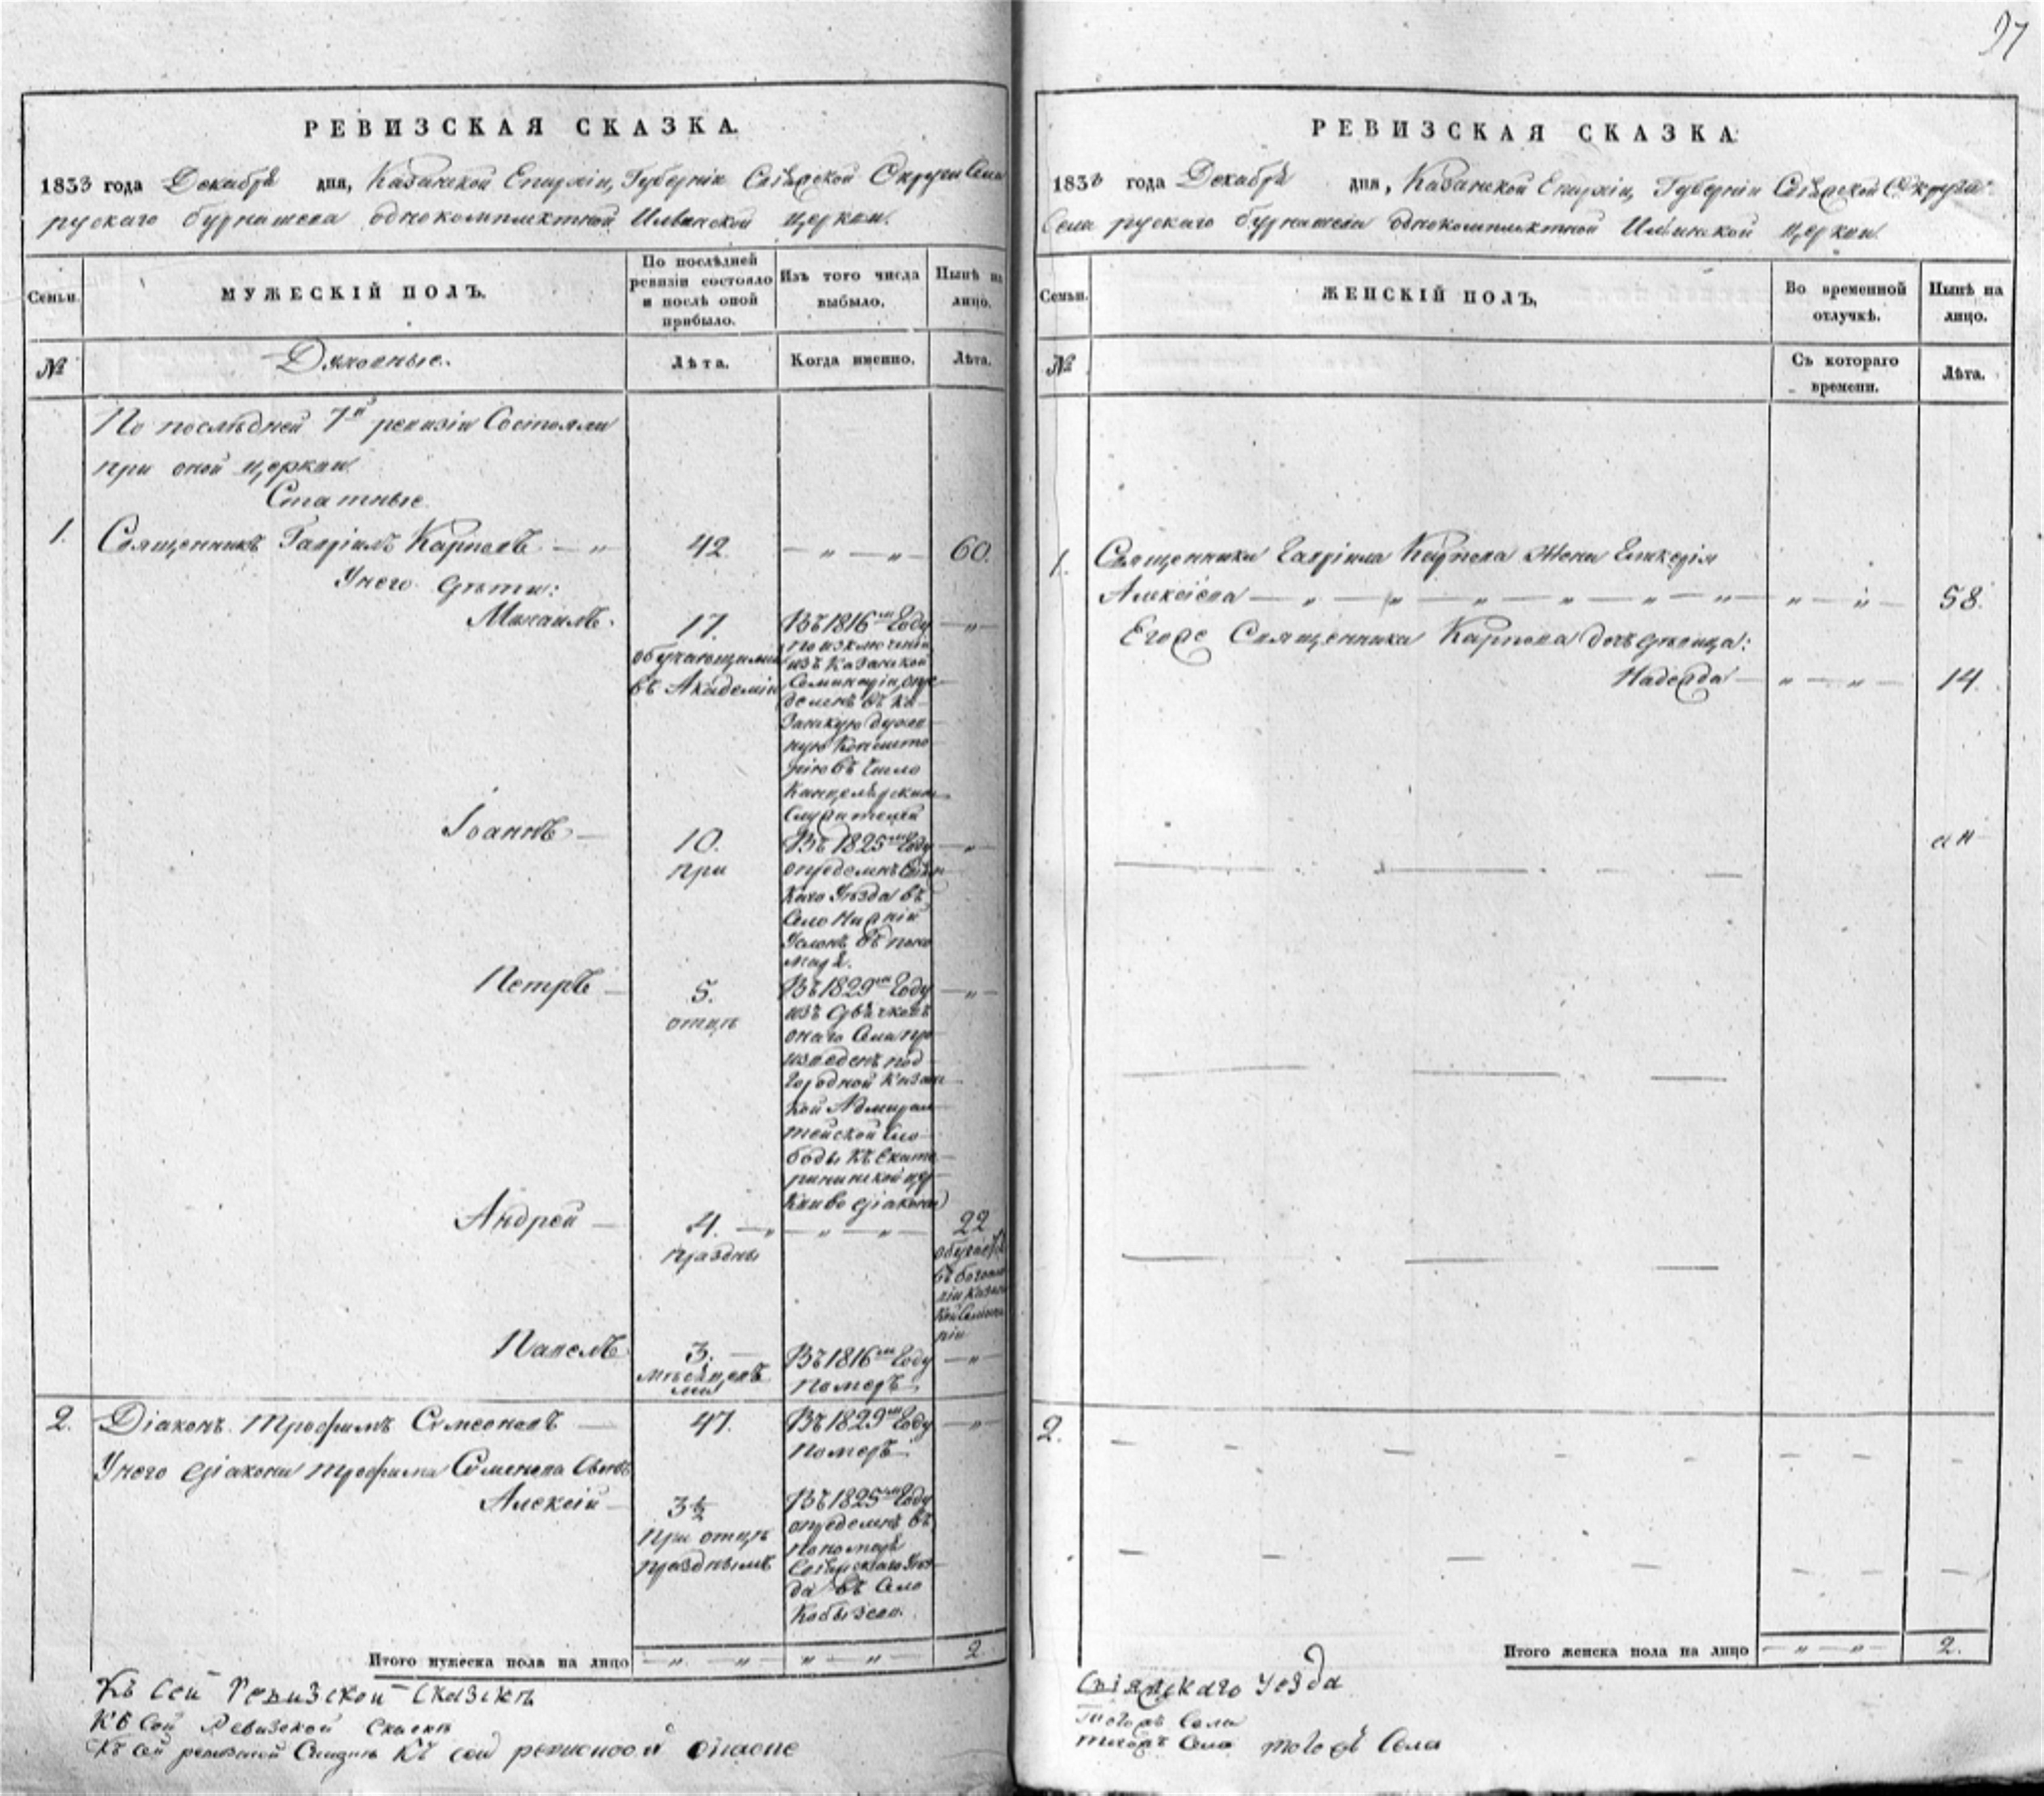 97
РЕВИЗСКАЯ СКАЗКА.
1833 года Декабря дня, Казанской Епархіи, Губерніи Свіяжской Округи Села
русскаго бурнашева однокомплектной Ильинской церкви.
Семьи.
МУЖЕСКІЙ ПОЛЪ.
По послѣдней
ревизіи состояло
и послѣ оной
прибыло.
Изъ того числа
выбыло.
Нынѣ на
лицо.
№
Духовные.
Лѣта.
Когда именно.
Лѣта.
По послѣдней 7й ревизіи Состояли
при оной церкви.
Статные
1. Священникъ Гавріилъ Карповъ — „ 42 — „ — „ — 60.
У него дѣти:
Михаилъ. 17. Въ 1816м Году — „ —
обучающимся
въ Академіи
по изключеніи
изъ Казанской
Семинаріи, опре
деленъ въ Ка-
занскую духов
ную Консисто
рію въ Число
Канцелярскихъ
Служителей
Іоаннъ — 10. Въ 1825м Году — „ —
при
определенъ Свіяж
каго Уѣзда въ
Село Нижній
Услонъ въ поно
маря.
Петръ — 5. Въ 1829м Году — „ —
отцѣ
изъ дьячковъ
онаго Села про
изведенъ под
городной Казан
кой Адмирал
тейской Сло
боды къ Екате
рининской цер
кви во діакона
Андрей — 4. — „ — „ — „ — 22
праздны
обучается
въ богосло
віи Казанс
кой Семина
ріи
Павелъ 3. — Въ 1816м Году — „ —
мѣсяцевъ
Померъ
2. Діаконъ Трофимъ Симеоновъ — 47. Въ 1829м Году — „ —
Померъ
У него діакона Трофима Семенова Сынъ
Алексій — 3½ Въ 1825м Году
При отцѣ
празднымъ
определенъ въ
пономаря
Свіяжскаго Уѣз
да въ Село
Кобызево.
Итого мужеска пола на лицо — „ — „ — „ — „ — 2
Къ сей Ревизской Сказкѣ
Къ Сей Ревизской Сказкѣ
Къ сей ревизской Сказкѣ Къ сей
РЕВИЗСКАЯ СКАЗКА.
1833 года Декабря дня, Казанской Епархіи, Губерніи Свіяжской Округи
Села русскаго бурнашева однокомплектной Ильинской церкви.
Семьи.
ЖЕНСКІЙ ПОЛЪ,
Во временной
отлучкѣ.
Нынѣ на
лицо.
№
Съ котораго
времени.
Лѣта.
1. Священника Гавріила Карпова Жена Гликерія
Алексіева — „ — „ — „ — „ — „ — „ — „ — „ — 58.
Егоже Священника Карпова дочь девица:
Надежда — „ — „ — 14.
2.
Итого женска пола на лицо — „ — „ — 2.
Свіяжскаго Уезда
Тогожъ Села
Тогожъ Села тогожъ Села